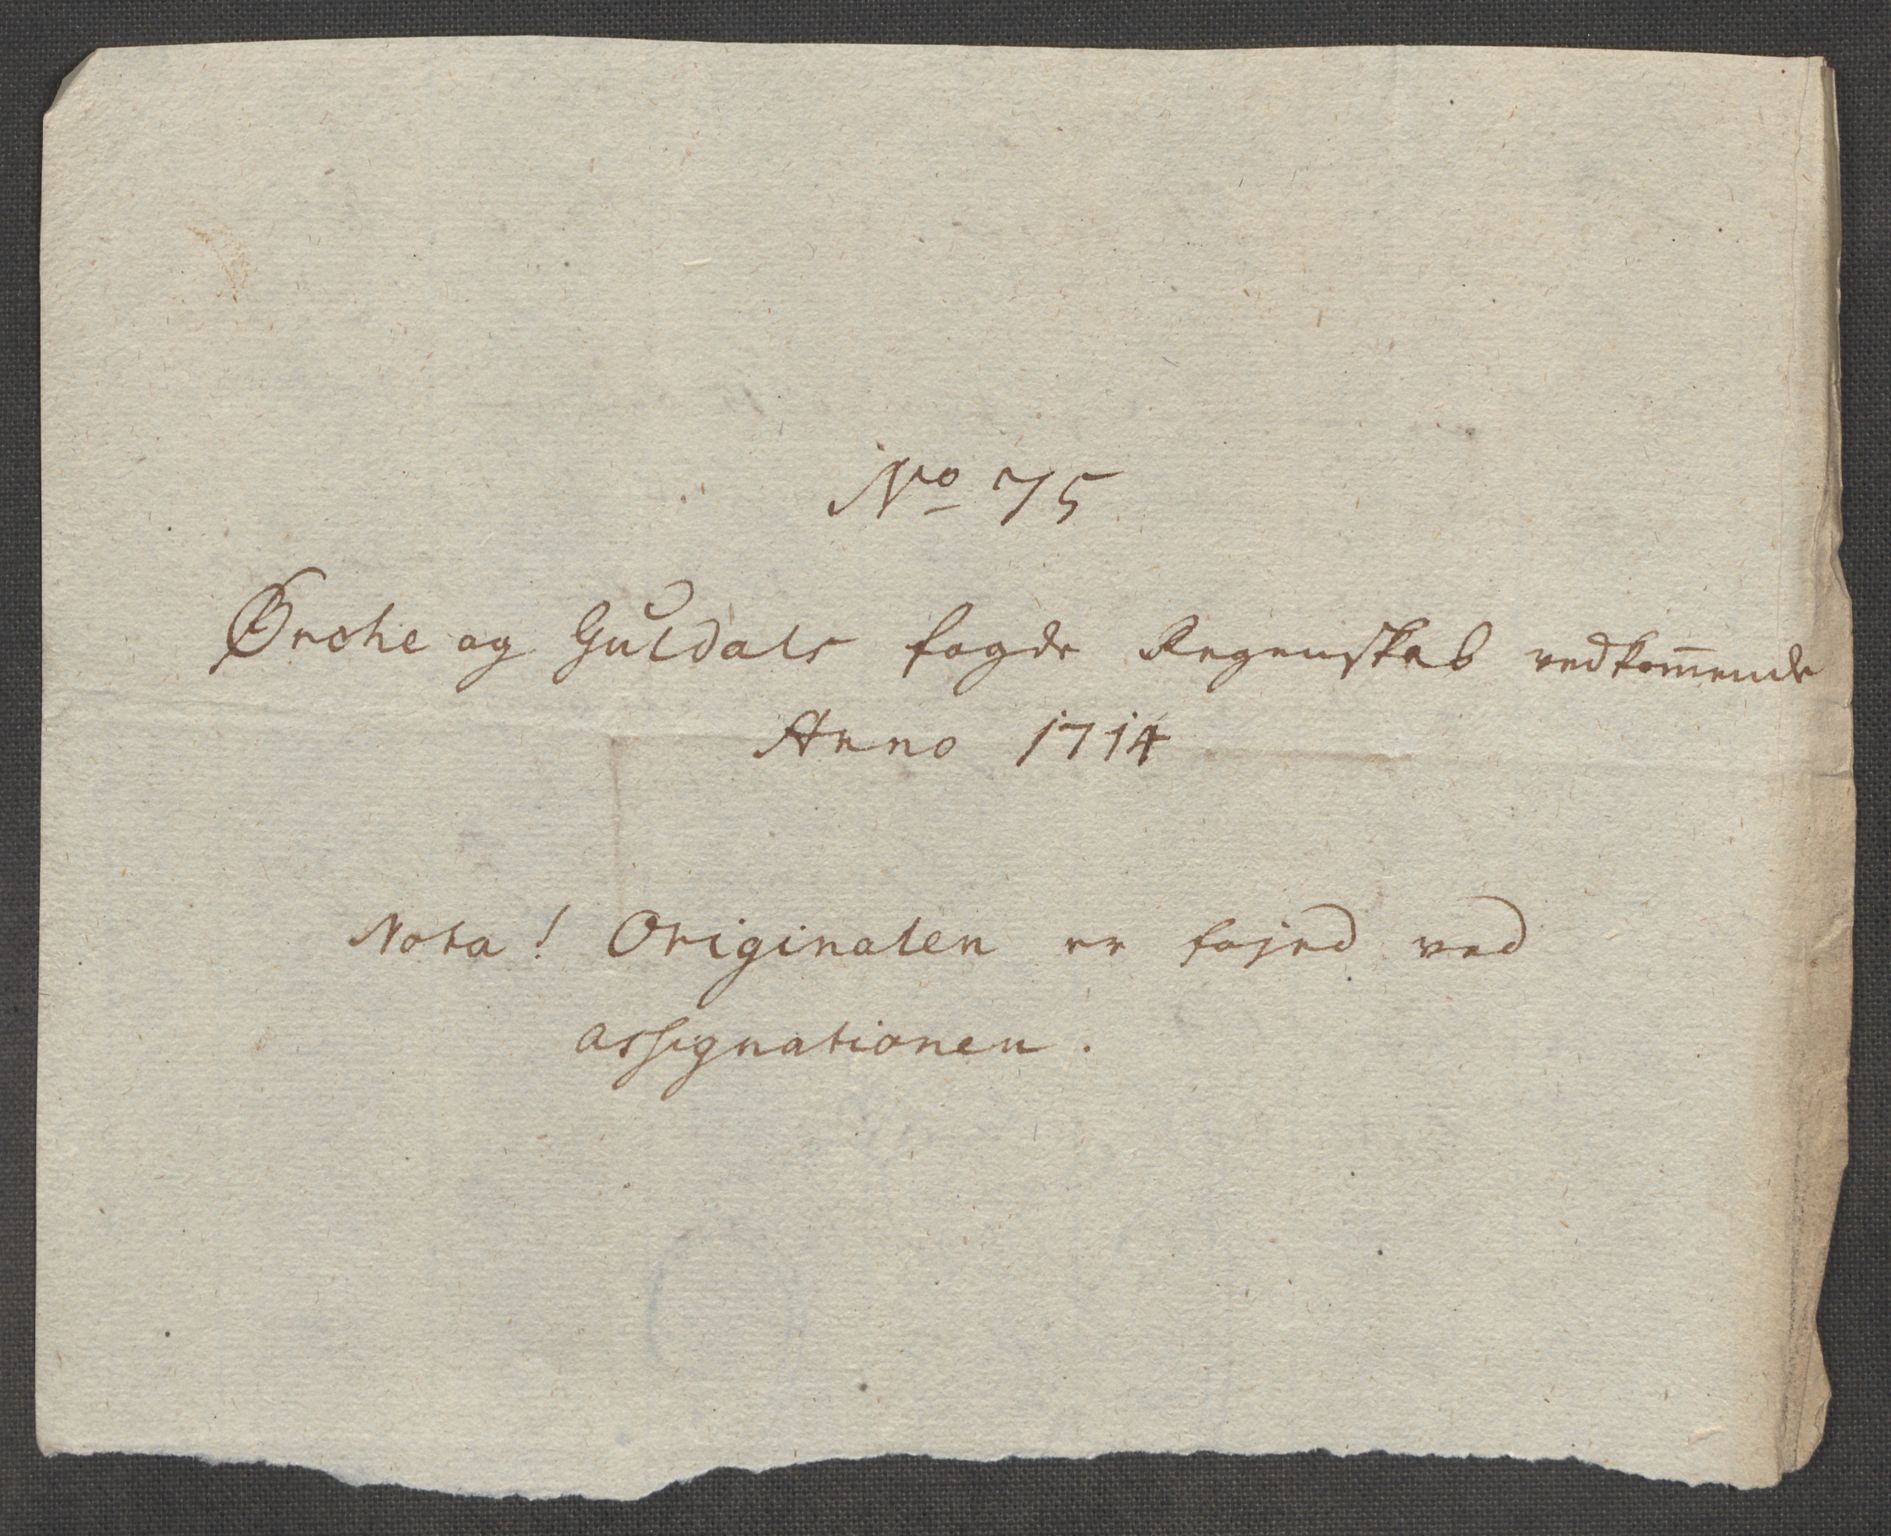 No 75
Ørche og Guldals fogde Regenskab vedkom̄ende
Anno 1714
Nota! Originalen er føjed ved
assignationen.